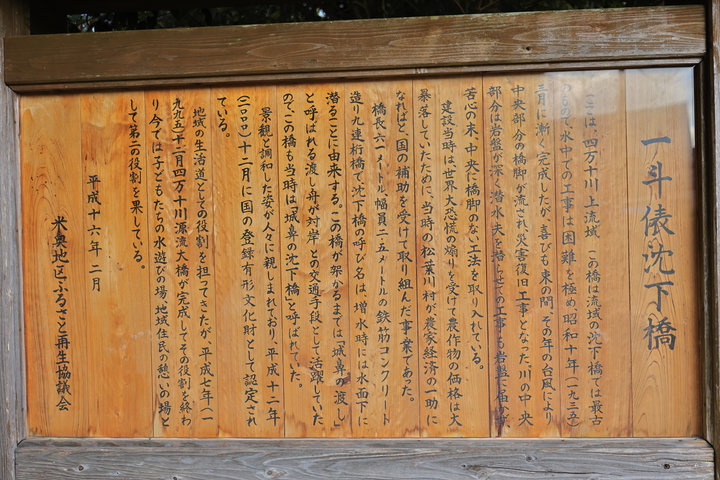 一斗俵沈下橋
ここは、四万十川上流域 この橋は流域の沈下橋では最古
のもので、水中での工事は困難を極め昭和十年(一九三五)
三月に漸く完成したが、喜びも束の間、その年の台風により
中央部分の橋脚が流され災害復旧工事となった。川の中央
部分は岩盤が深く潜水夫を潜らせての工事も岩盤に届かず
苦心の末、中央に橋脚のない工法を取り入れている。
建設当時は、世界大恐慌の煽りを受けて農作物の価格は大
暴落していたために、当時の松葉川村が、農家経済の一助に
なればと、国の補助を受けて取り組んだ事業であった。
橋長六一メートル、幅員二・五メートルの鉄筋コンクリート
造り九連桁橋で、沈下橋の呼び名は、増水時には水面下に
潜ることに由来する。この橋が架かるまでは「城鼻の渡し」
と呼ばれる渡し舟が対岸との交通手段として活躍していた
ので、この橋も当時は「城鼻の沈下橋」と呼ばれていた。
景観と調和した姿が人々に親しまれており、平成十二年
(二〇〇〇)十二月に国の登録有形文化財として認定され
ている。
地域の生活道としての役割を担ってきたが、平成七年(一
九九五)十二月四万十川源流大橋が完成してその役割を終わ
り今では子どもたちの水遊びの場、地域住民の憩いの場と
して第二の役割を果している。
平成十六年二月
米奥地区ふるさと再生協議会